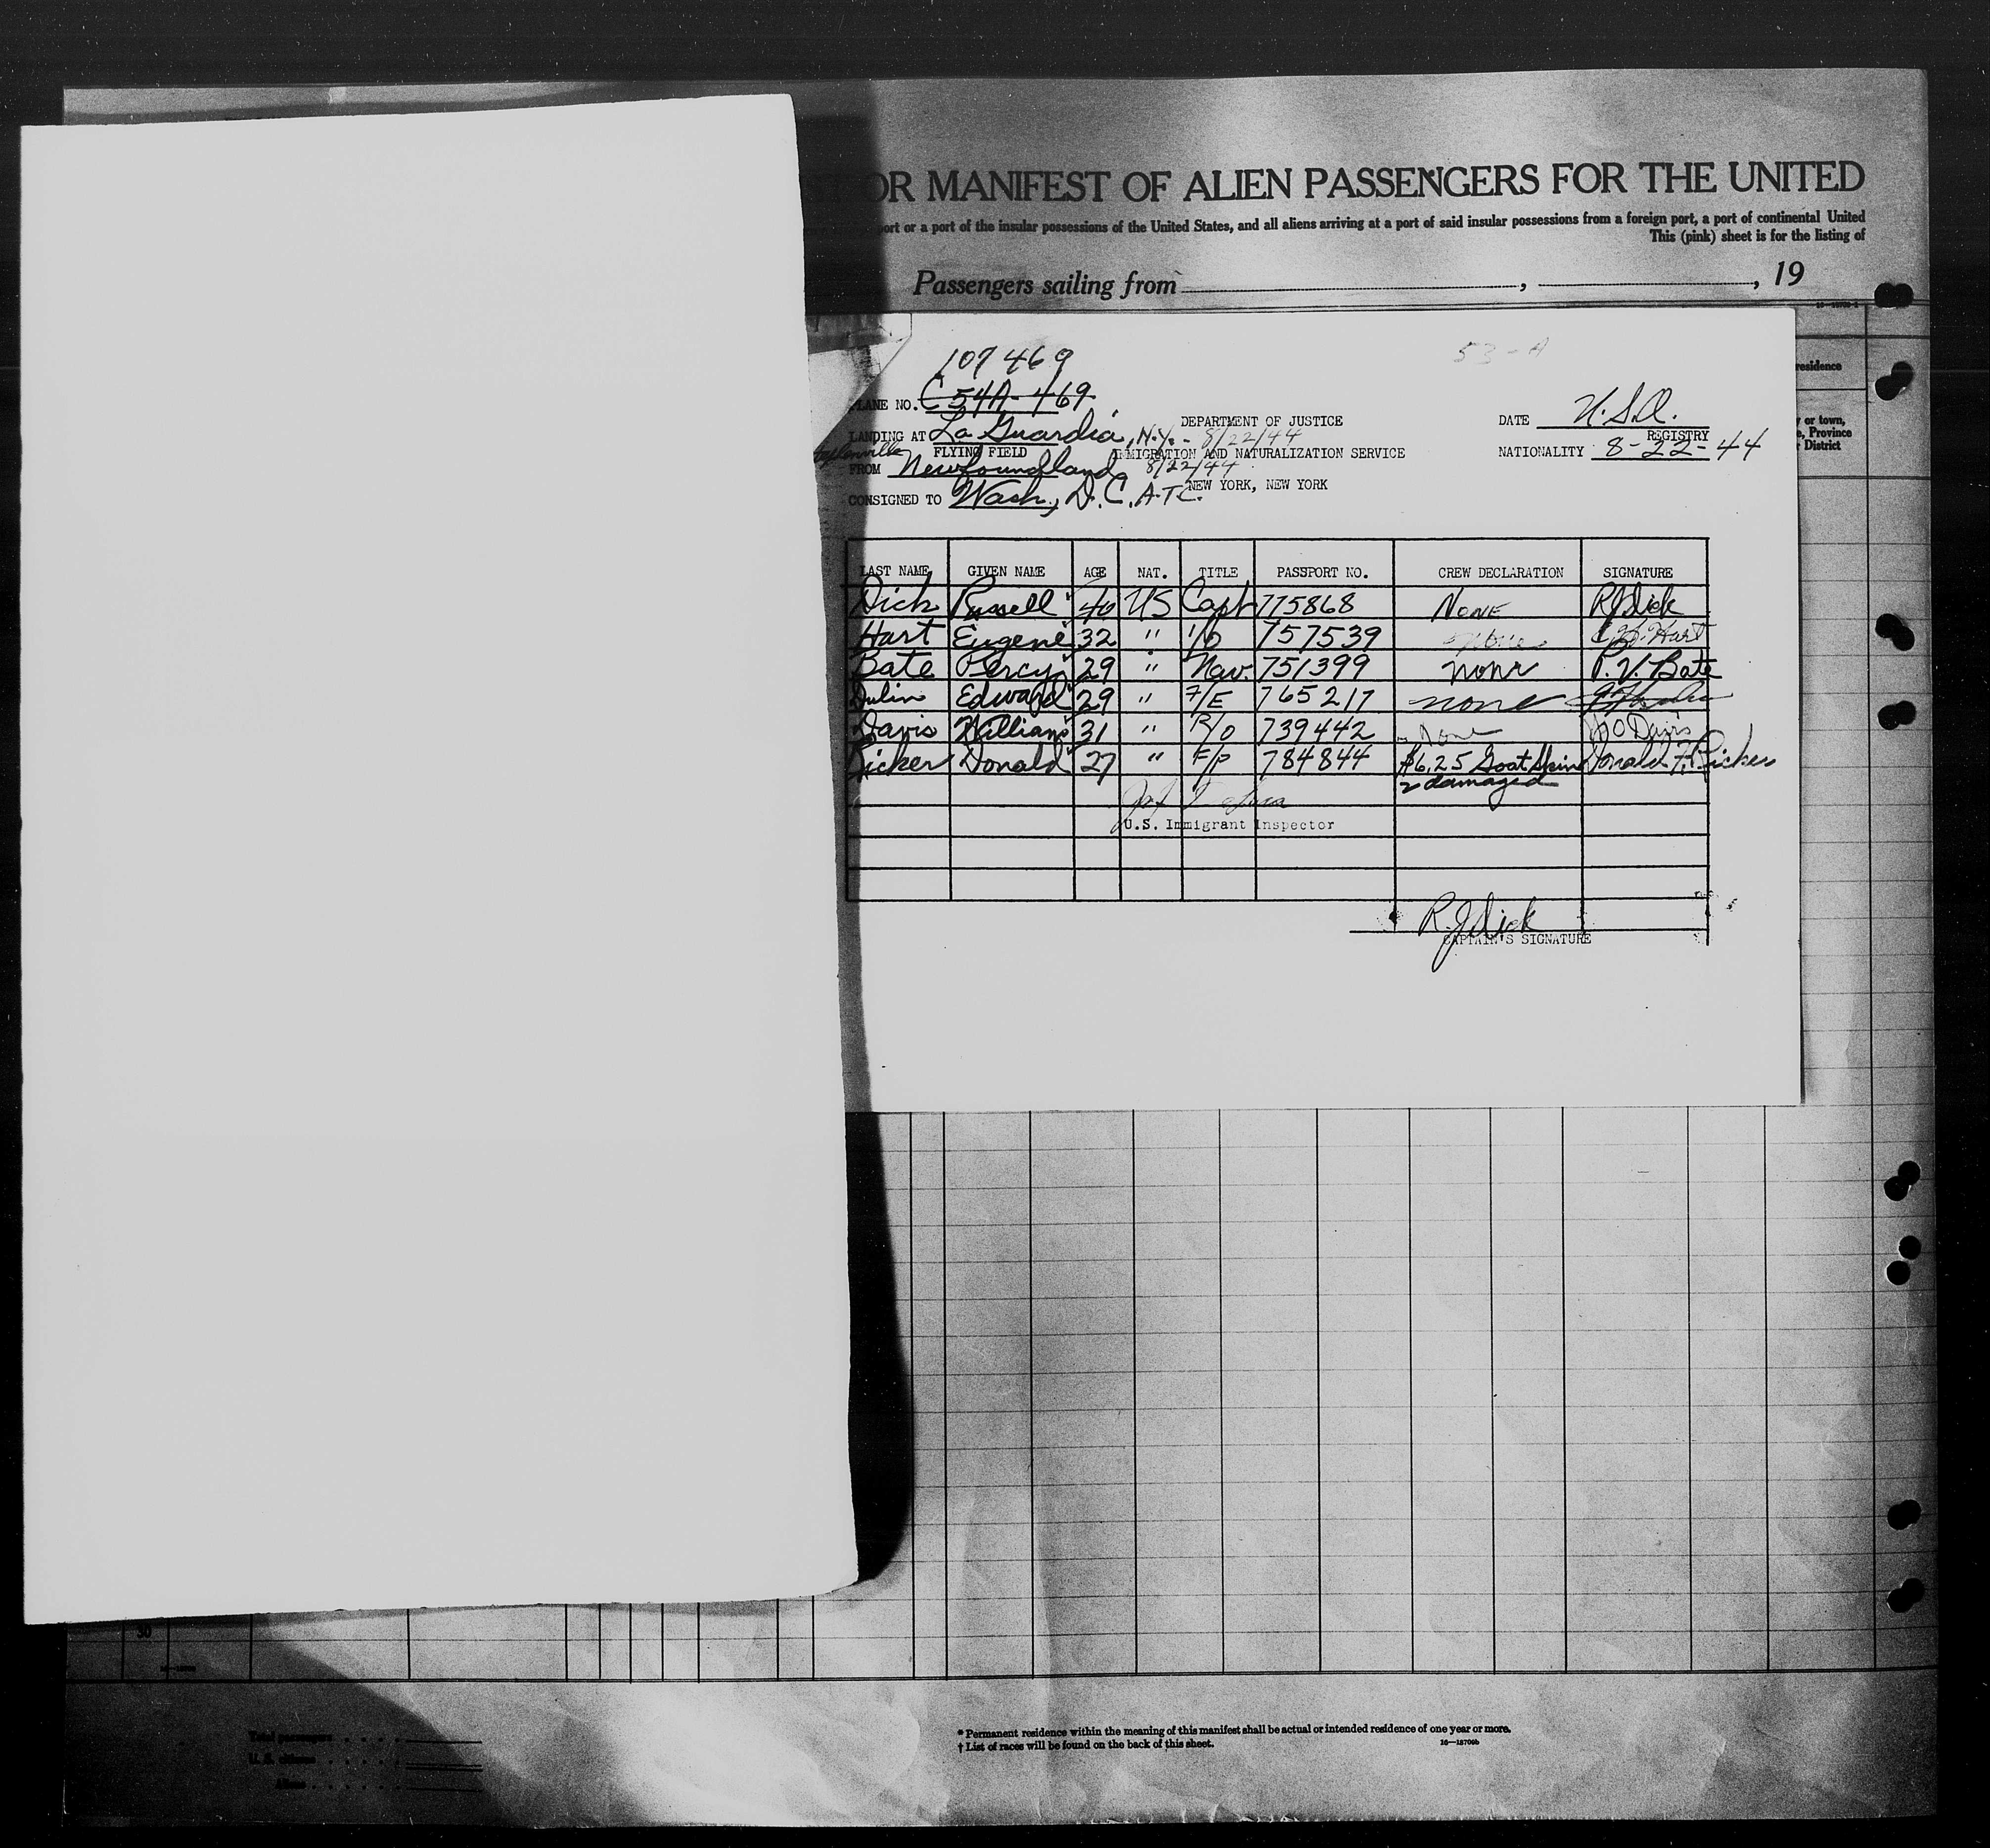 OR MANIFEST OF ALIEN PASSENGERS FOR THE UNITED
port or a port of the insular possessions of the United States, and all aliens arriving at a port of said insular possessions from a foreign port, a port of continental United
This (pink) sheet is for the listing of
Passengers sailing from , , 19
residence
or town,
Province
District
107469
53-A
PLANE NO. C54A-469
DEPARTMENT OF JUSTICE
DATE U.S.A.
LANDING AT La Guardia, N.Y. - 8/22/44
REGISTRY
FLYING FIELD
IMMIGRATION AND NATURALIZATION SERVICE
NATIONALITY 8-22-44
FROM Newfoundland 8/22/44
NEW YORK, NEW YORK
CONSIGNED TO Wash., D.C. A.T.C.
LAST NAME GIVEN NAME AGE NAT. TITLE PASSPORT NO. CREW DECLARATION SIGNATURE
Dick Russell 40 US Capt 775868 NONE RJDick
Hart Eugene 32 " 1/0 757539 none Hart
Bate Percy 29 " Nav. 751399 none P. V. Bate
Dulin Edward 29 " F/E 765217 none
Davis William 31 " R/O 739442 None Davis
Ricker Donald 27 " F/P 784844 $6.25 Goat Skin Donald F. Ricker
2 damaged
U.S. Immigrant Inspector
R.J.Dick
CAPTAIN'S SIGNATURE
30
Total passengers
U. S. citizens
Aliens
* Permanent residence within the meaning of this manifest shall be actual or intended residence of one year or more.
† List of races will be found on the back of this sheet.